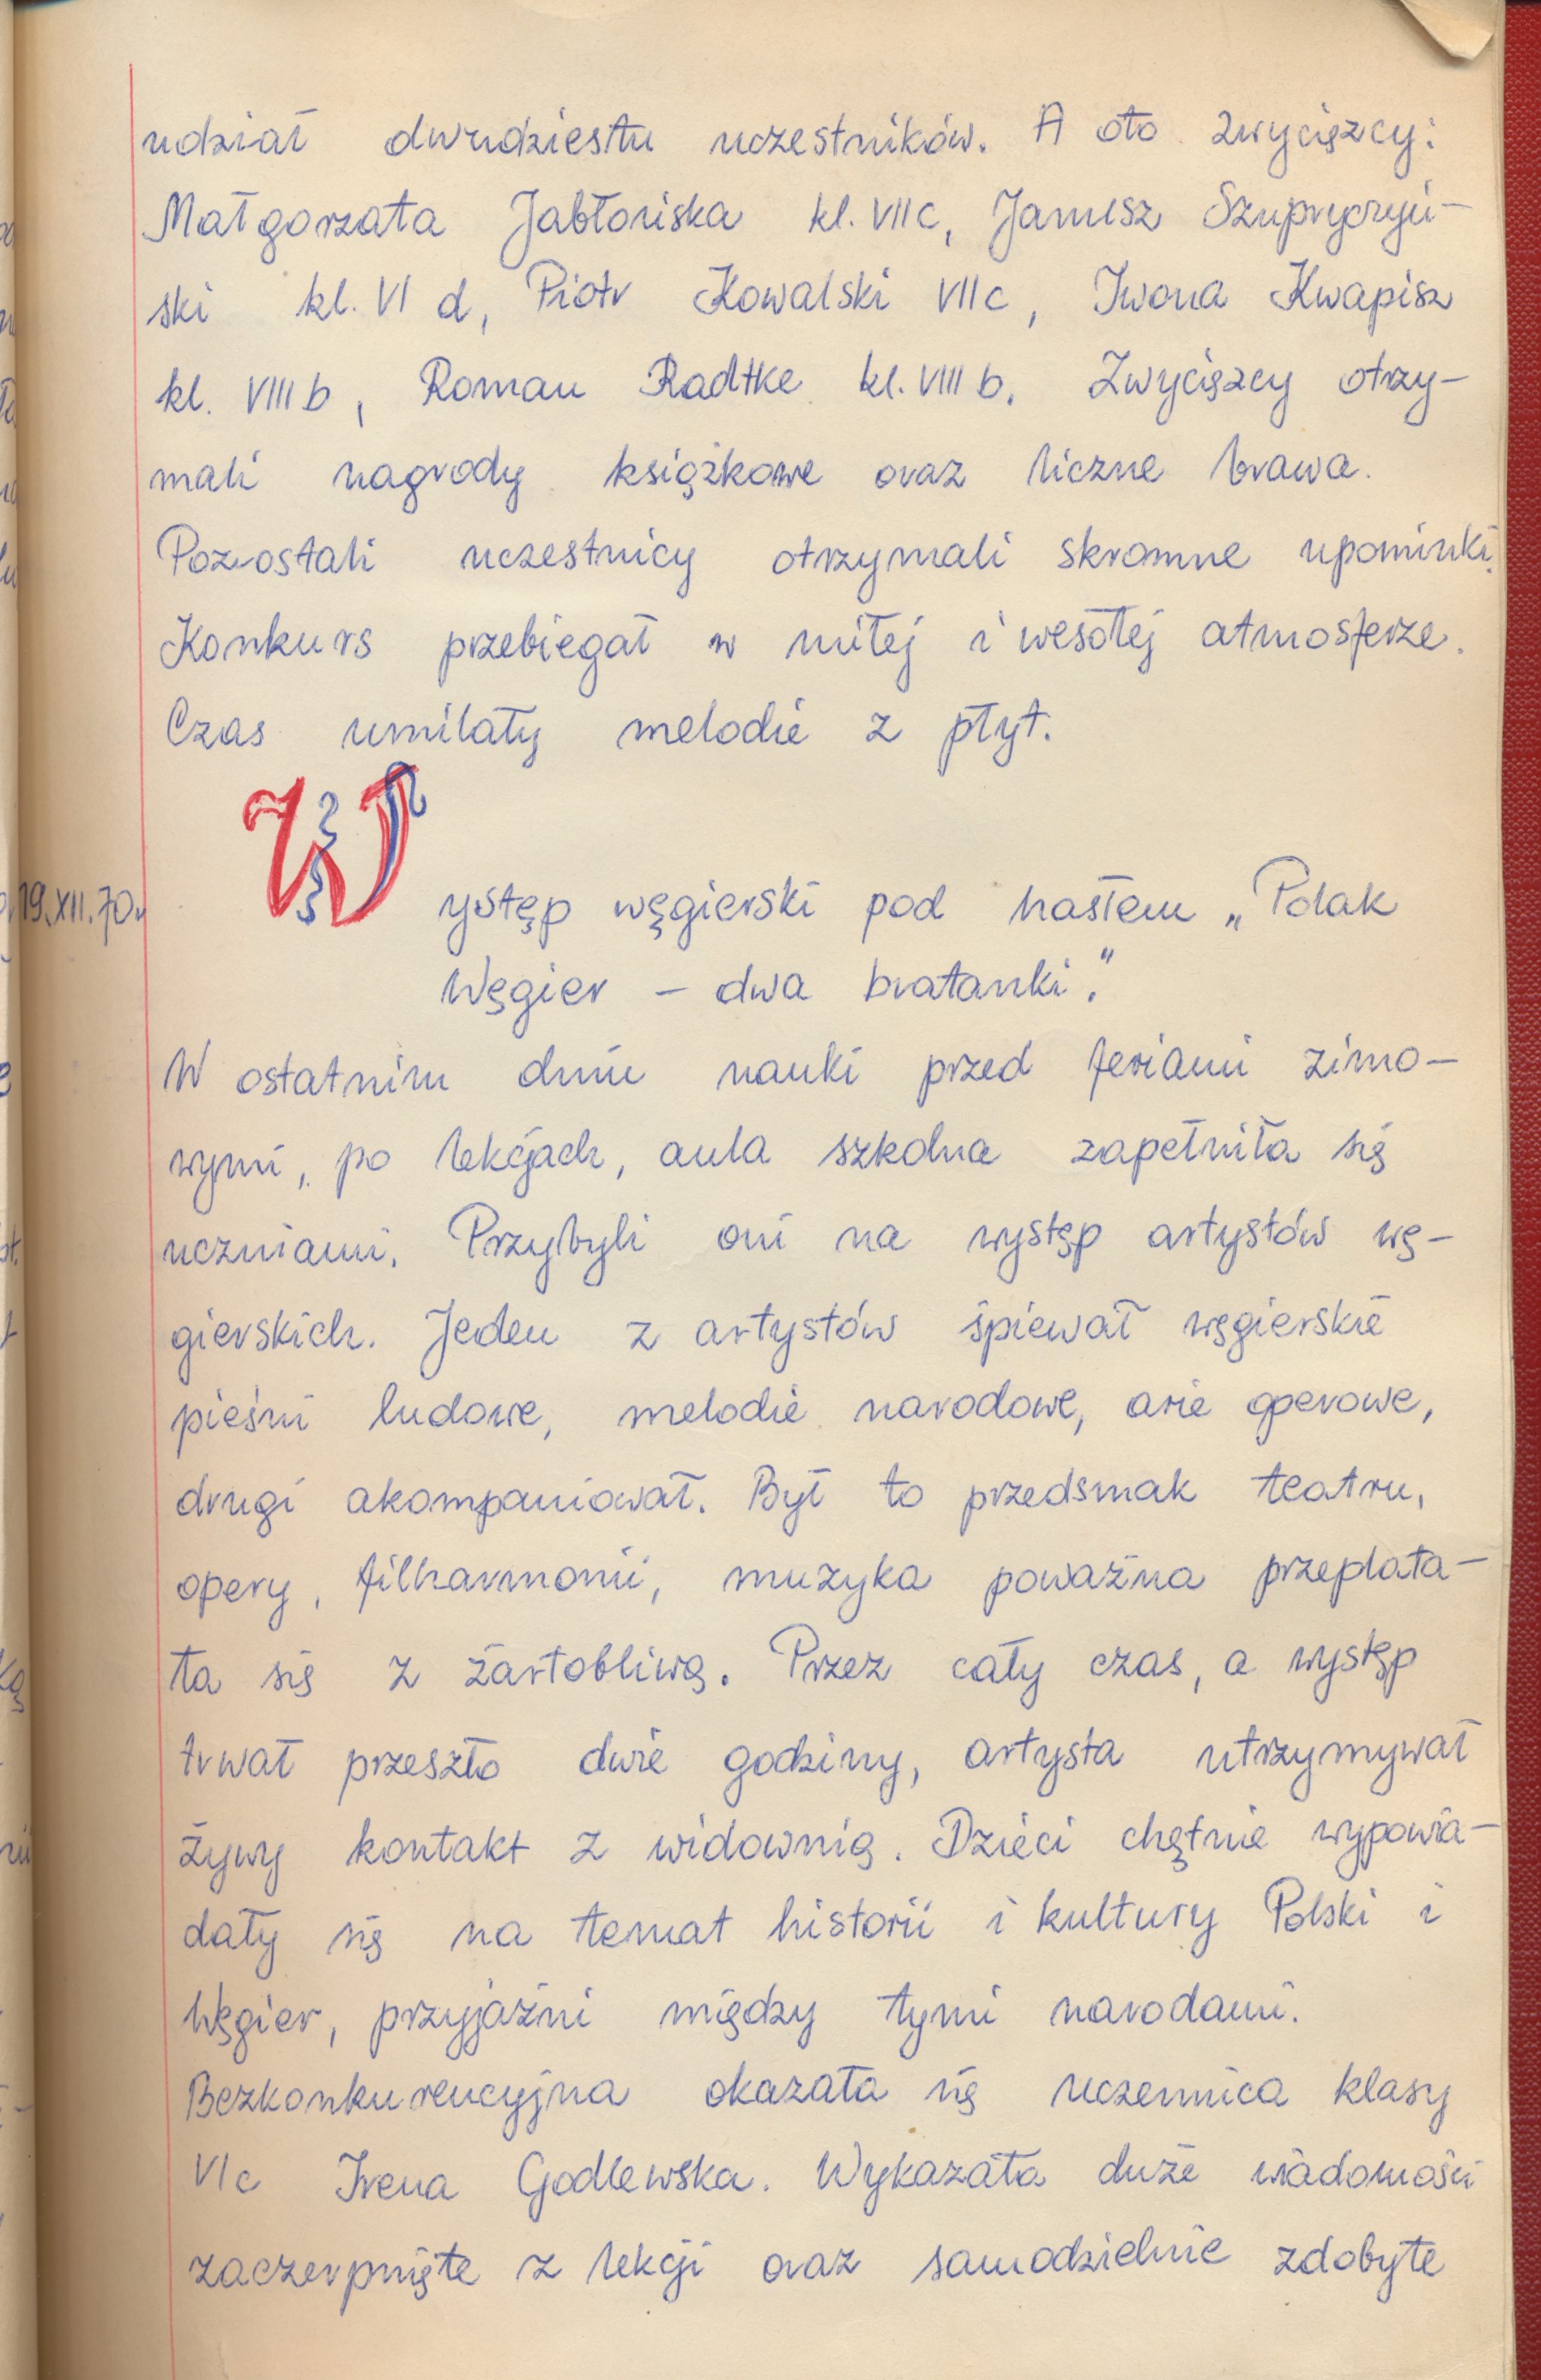 udział dwudziestu uczestników. A oto zwycięzcy:
Małgorzata Jabłońska kl. VII c, Janusz Szupryczyń-
ski kl. VI d, Piotr Kowalski VII c, Iwona Kwapisz
kl. VIII b, Roman Radtke kl. VIII b. Zwycięzcy otrzy-
mali nagrody książkowe oraz liczne brawa.
Pozostali uczestnicy otrzymali skromne upominki.
Konkurs przebiegał w miłej i wesołej atmosferze.
Czas umilały melodie z płyt.
19.XII.70r
Występ węgierski pod hasłem „Polak
Węgier – dwa bratanki".
W ostatnim dniu nauki przed feriami zimo-
wymi, po lekcjach, aula szkolna zapełniła się
uczniami. Przybyli oni na występ artystów wę-
gierskich. Jeden z artystów śpiewał węgierskie
pieśni ludowe, melodie narodowe, arie operowe,
drugi akompaniował. Był to przedsmak teatru,
opery, filharmonii, muzyka poważna przeplata-
ła się z żartobliwą. Przez cały czas, a występ
trwał przeszło dwie godziny, artysta utrzymywał
żywy kontakt z widownią. Dzieci chętnie wypowia-
dały się na temat historii i kultury Polski i
Węgier, przyjaźni między tymi narodami.
Bezkonkurencyjna okazała się uczennica klasy
VI c Irena Godlewska. Wykazała duże wiadomości
zaczerpnięte z lekcji oraz samodzielnie zdobyte